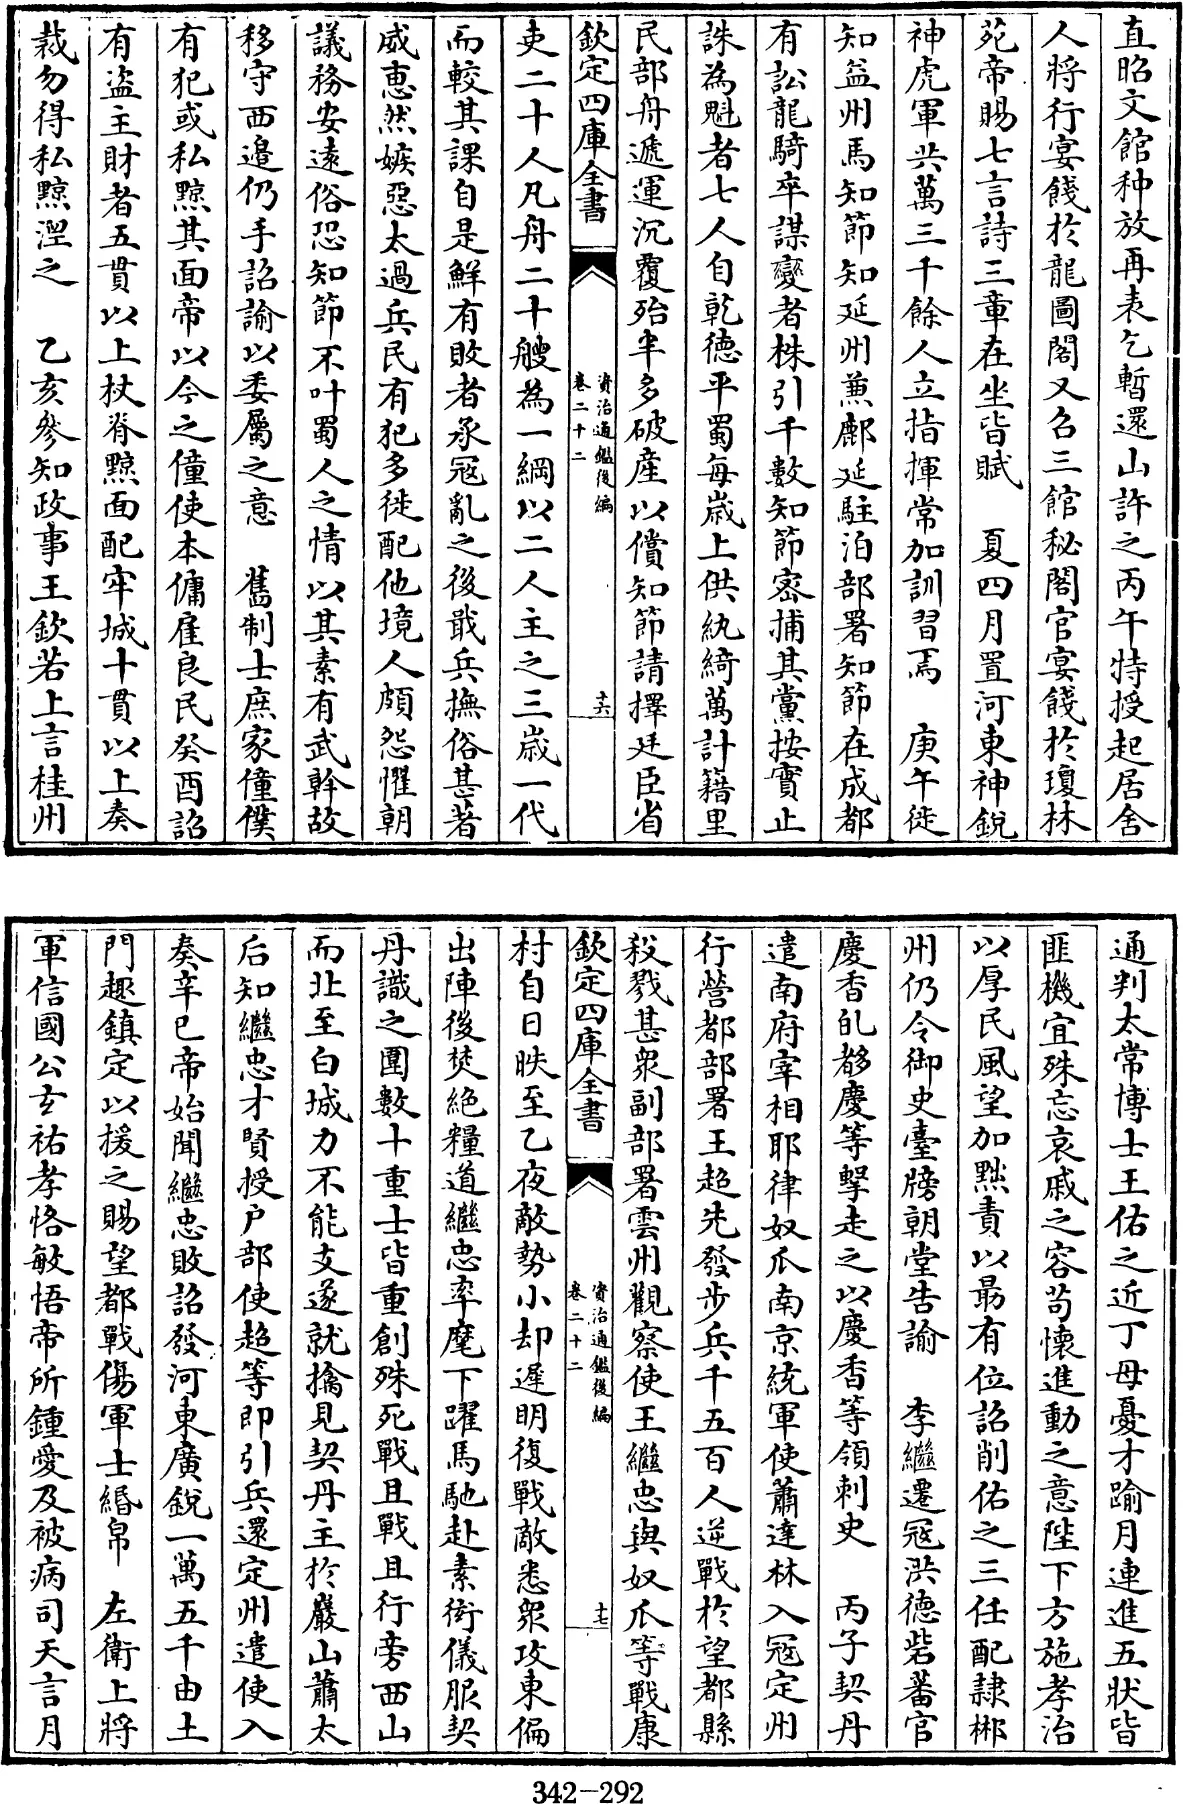 直昭文館种放再表乞暫還山許之丙午特授起居舍
人將行宴餞於龍圖閣又召三館秘閣官宴餞於瓊林
苑帝賜七言詩三章在坐皆賦　夏四月置河東神銳
神虎軍共萬三千餘人立指揮常加訓習焉　庚午徙
知益州馬知節知延州兼鄜延駐泊部署知節在成都
有訟龍騎卒謀變者株引千數知節密捕其黨按實止
誅為魁者七人自乾德平蜀每歲上供紈綺萬計籍里
民部舟遞運沉覆殆半多破產以償知節請擇廷臣省
欽定四庫全書
資治通鑑後編
卷二十二
十六
吏二十人凡舟二十艘為一綱以二人主之三歲一代
而較其課自是鮮有敗者承寇亂之後戢兵撫俗甚著
威惠然嫉惡太過兵民有犯多徙配他境人頗怨懼朝
議務安遠俗恐知節不叶蜀人之情以其素有武幹故
移守西邊仍手詔諭以委屬之意　舊制士庶家僮僕
有犯或私黥其面帝以今之僮使本傭雇良民癸酉詔
有盜主財者五貫以上杖脊黥面配牢城十貫以上奏
裁勿得私黥涅之　乙亥參知政事王欽若上言桂州
通判太常博士王佑之近丁母憂才踰月連進五狀皆
匪機宜殊忘哀戚之容茍懷進動之意陛下方施孝治
以厚民風望加黜責以最有位詔削佑之三任配隸郴
州仍令御史臺牓朝堂告諭　李繼遷寇洪德砦蕃官
慶香癿𢺞慶等擊走之以慶香等領刺史　丙子契丹
遣南府宰相耶律奴瓜南京統軍使蕭達林入寇定州
行營都部署王超先發步兵千五百人逆戰於望都縣
殺戮甚衆副部署雲州觀察使王繼忠與奴瓜等戰康
欽定四庫全書
資治通鑑後編
卷二十二
十七
村自日昳至乙夜敵勢小却遲明復戰敵悉衆攻東偏
出陣後焚絕糧道繼忠率麾下躍馬馳赴素衒儀服契
丹識之圍數十重士皆重創殊死戰且戰且行旁西山
而北至白城力不能支遂就擒見契丹主於嚴山蕭太
后知繼忠才賢授户部使超等即引兵還定州遣使入
奏辛巳帝始聞繼忠敗詔發河東廣銳一萬五千由土
門趣鎮定以援之賜望都戰傷軍士緡帛　左衛上將
軍信國公玄祐孝恪敏悟帝所鍾愛及被病司天言月
342-292